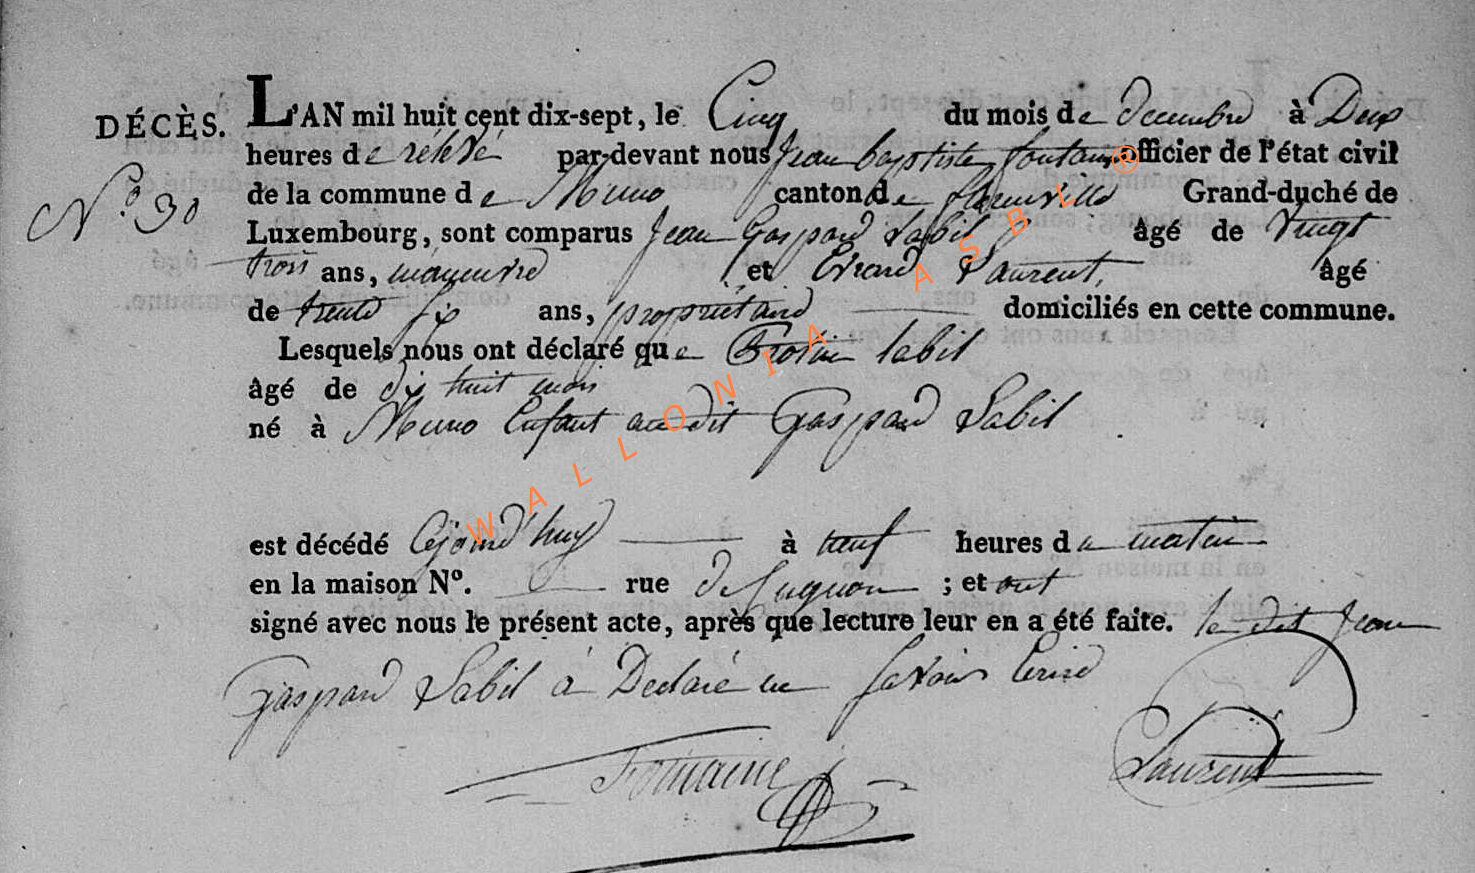 DÉCÈS.
L'AN mil huit cent dix-sept, le Cinq du mois de decembre à Deux
heures de rélévé par-devant nous Jean baptiste fontaine officier de l'état civil
N.º 30
de la commune de Muno canton de florenville Grand-duché de
Luxembourg, sont comparus Jean Gaspard Labil âgé de vingt
trois ans, maneuvre et Evrard Laurent, âgé
de trente six ans, propriétaire domiciliés en cette commune.
Lesquels nous ont déclaré que labil
âgé de dix huit mois
né à Muno Enfant au dit Gaspard Labil
est décédé Cejourd'huy à neuf heures du matin
en la maison Nº. rue ; et ont
signé avec nous le présent acte, après que lecture leur en a été faite. le dit Jean
Gaspard Labil à Declaré ne savoir Ecrire
Fontaine Laurent
WALLONIA ASBL ®